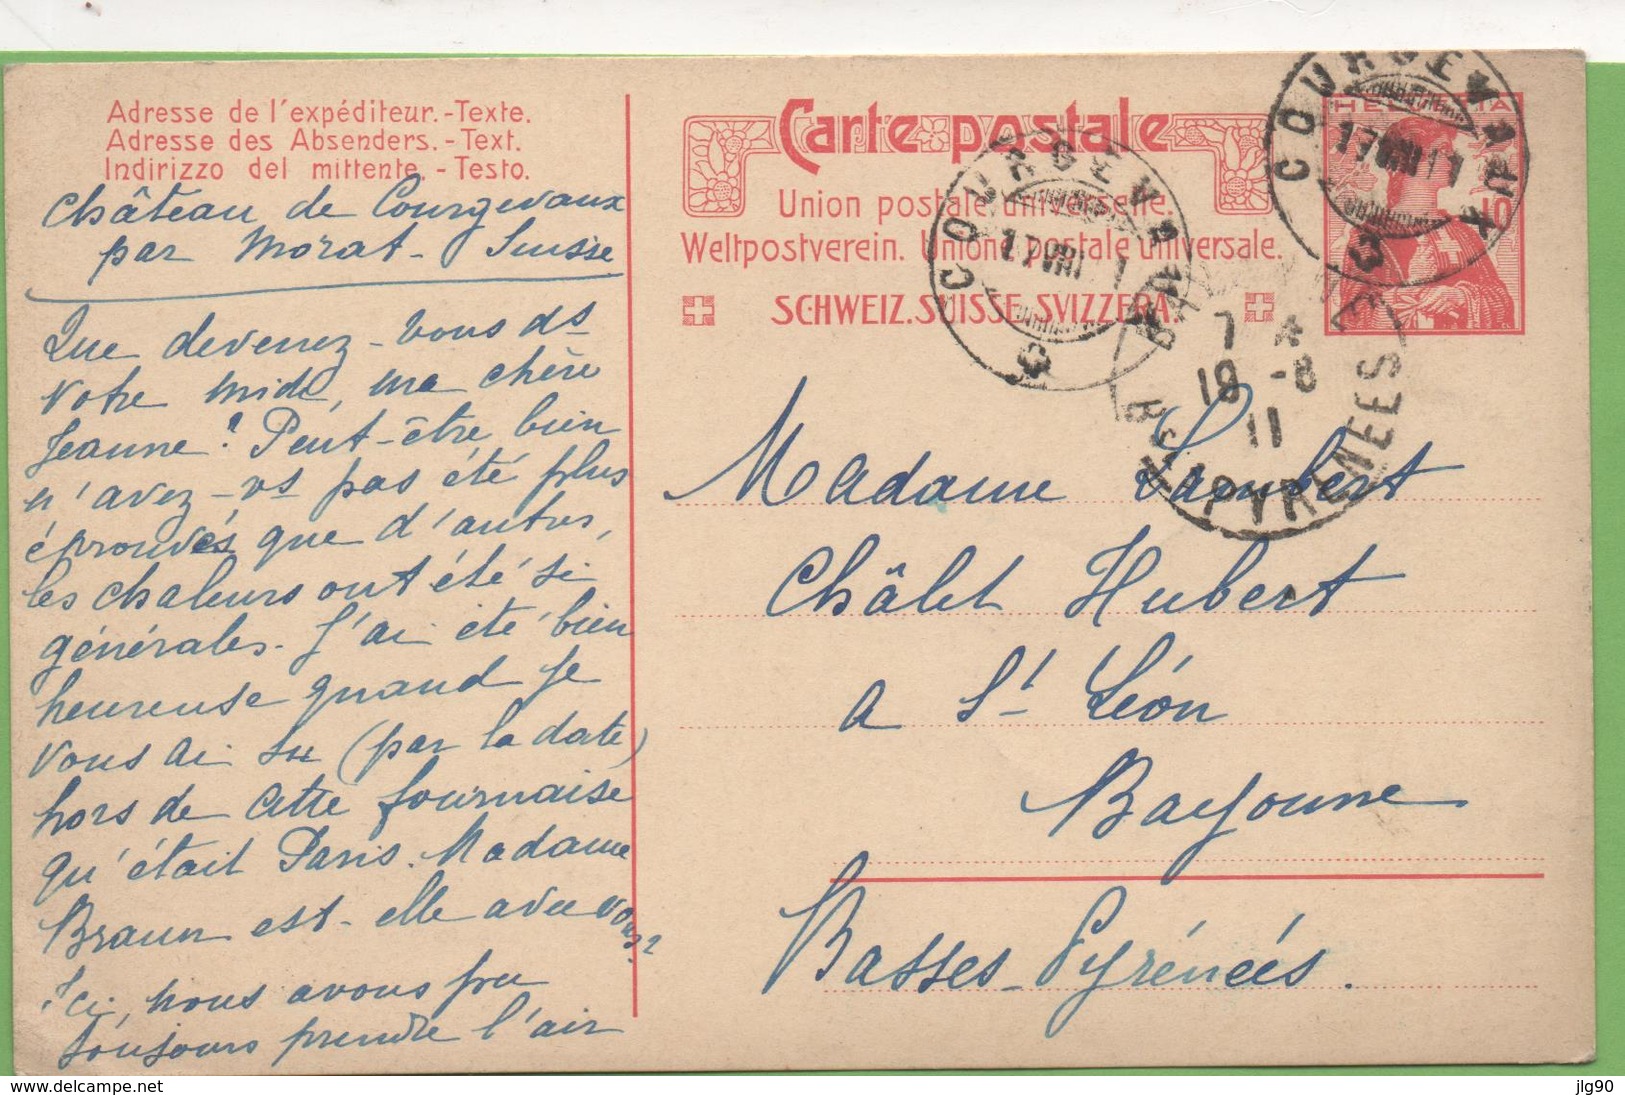 Adresse de l'expéditeur.-Texte.
Adresse des Absenders.-Text.
Indirizzo del mittente.-Testo.
Château de Courgevaux
par Morat - Suisse
Que devenez-vous ds
votre midi, ma chère
Jeanne? Peut-être bien
n'avez-vs pas été plus
éprouvés que d'autres,
les chaleurs ont été si
générales. J'ai été bien
heureuse quand je
vous ai su (par la date)
hors de cette fournaise
qu'était Paris. Madame
Braun est-elle avec vous?
Ici, nous avons pu
toujours prendre l'air
Carte postale
Union postale universelle.
Weltpostverein. Unione postale universale.
SCHWEIZ.SUISSE.SVIZZERA.
HELVETIA
10
COURGEVAUX
17 VIII 11
COURGEVAUX
17 VIII 11
BAYONNE
7 4
18 -8
11
BSES PYRENEES
Madame Lambert
Châlet Hubert
a St Léon
Bayonne
Basses-Pyrénées.
jlg90